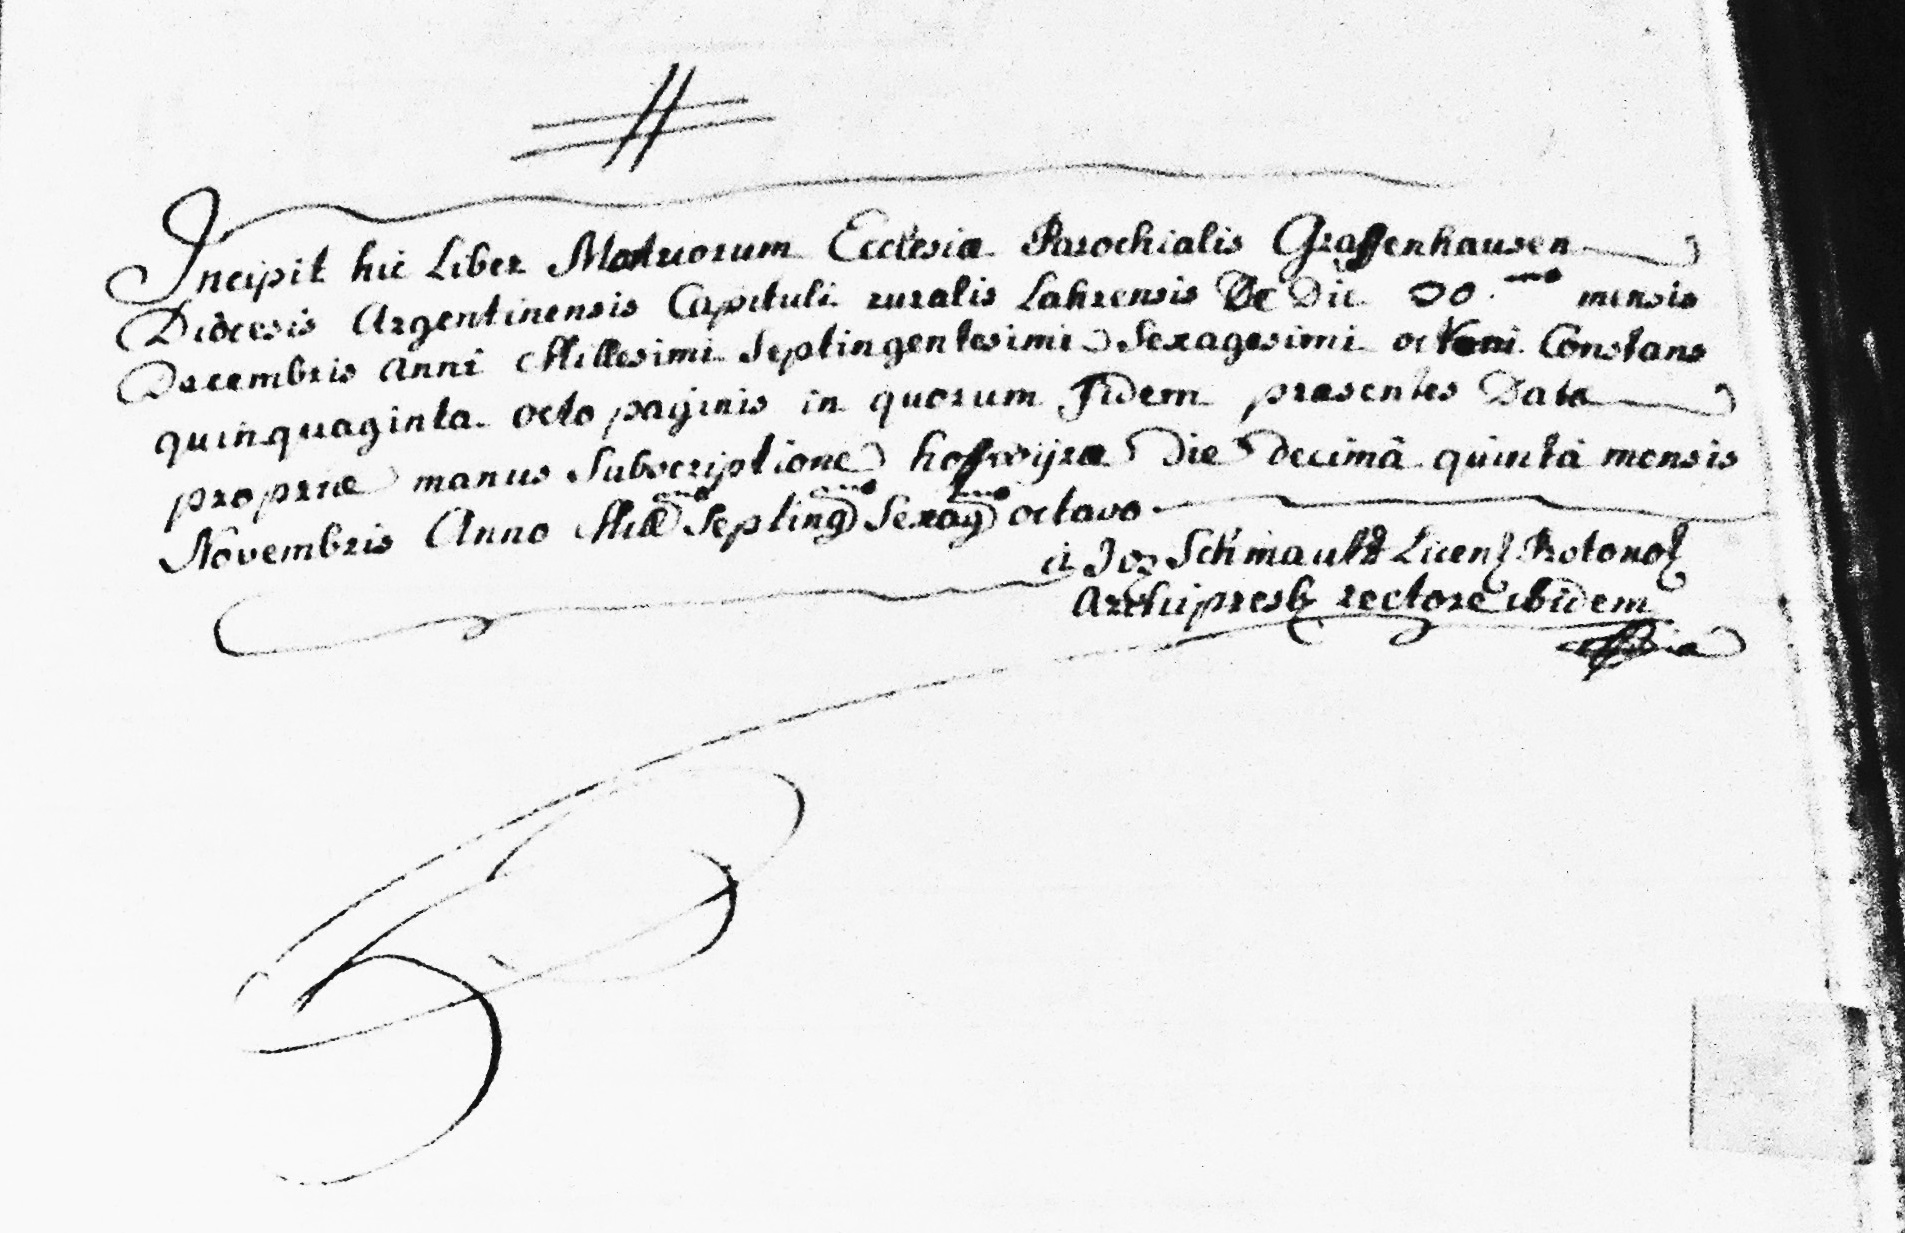 Incipit hic Liber Mortuorum Ecclesiæ Parochialis Graffenhausen
Diocesis Argentinensis Capituli ruralis Lahrensis De Die mensis
Decembris Anni Millesimi Septingentesimi Sexagesimi octavi Constans
quinquaginta octo paginis in quorum fidem præsentes Data
propriæ manus Subscriptione hoffwijræ Die decimâ quintâ mensis
Novembris Anno Mill Septing Sexag octavo
à Jos Schmaultz Licent Protonot
Archipresb rectore ibidem